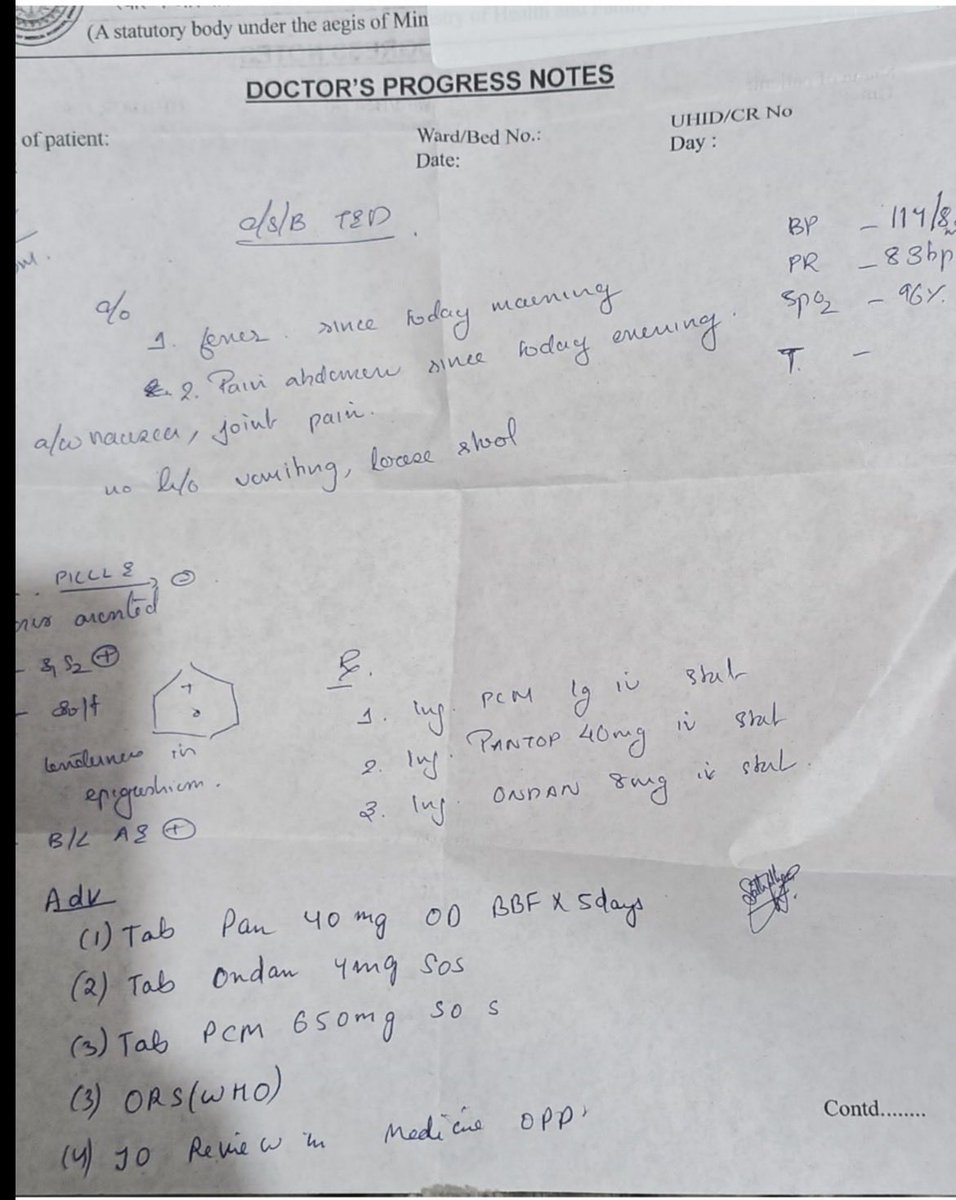 (A statutory body under the aegis of Min
DOCTOR'S PROGRESS NOTES
of patient:
Ward/Bed No.:
UHID/CR No
Date:
Day :
BP - 114/8
PR - 83bp
SpO2 - 96%
T. -
1. fever. since today morning
2. Pain abdomen since today evening.
a/w nausea, joint pain.
no h/o vomiting, loose stool
PICCLE
oriented
- S1 S2 +
- soft
tenderness in
epigastrium.
B/L AE +
Rx.
1. Inj. PCM 1g iv stat
2. Inj. PANTOP 40mg iv stat
3. Inj. ONDAN 8mg iv stat.
Adv
(1) Tab Pan 40 mg OD BBF X 5days
(2) Tab Ondan 4mg SOS
(3) Tab PCM 650mg SOS
(3) ORS(WHO)
(4) To Review in Medicine OPD
Contd........